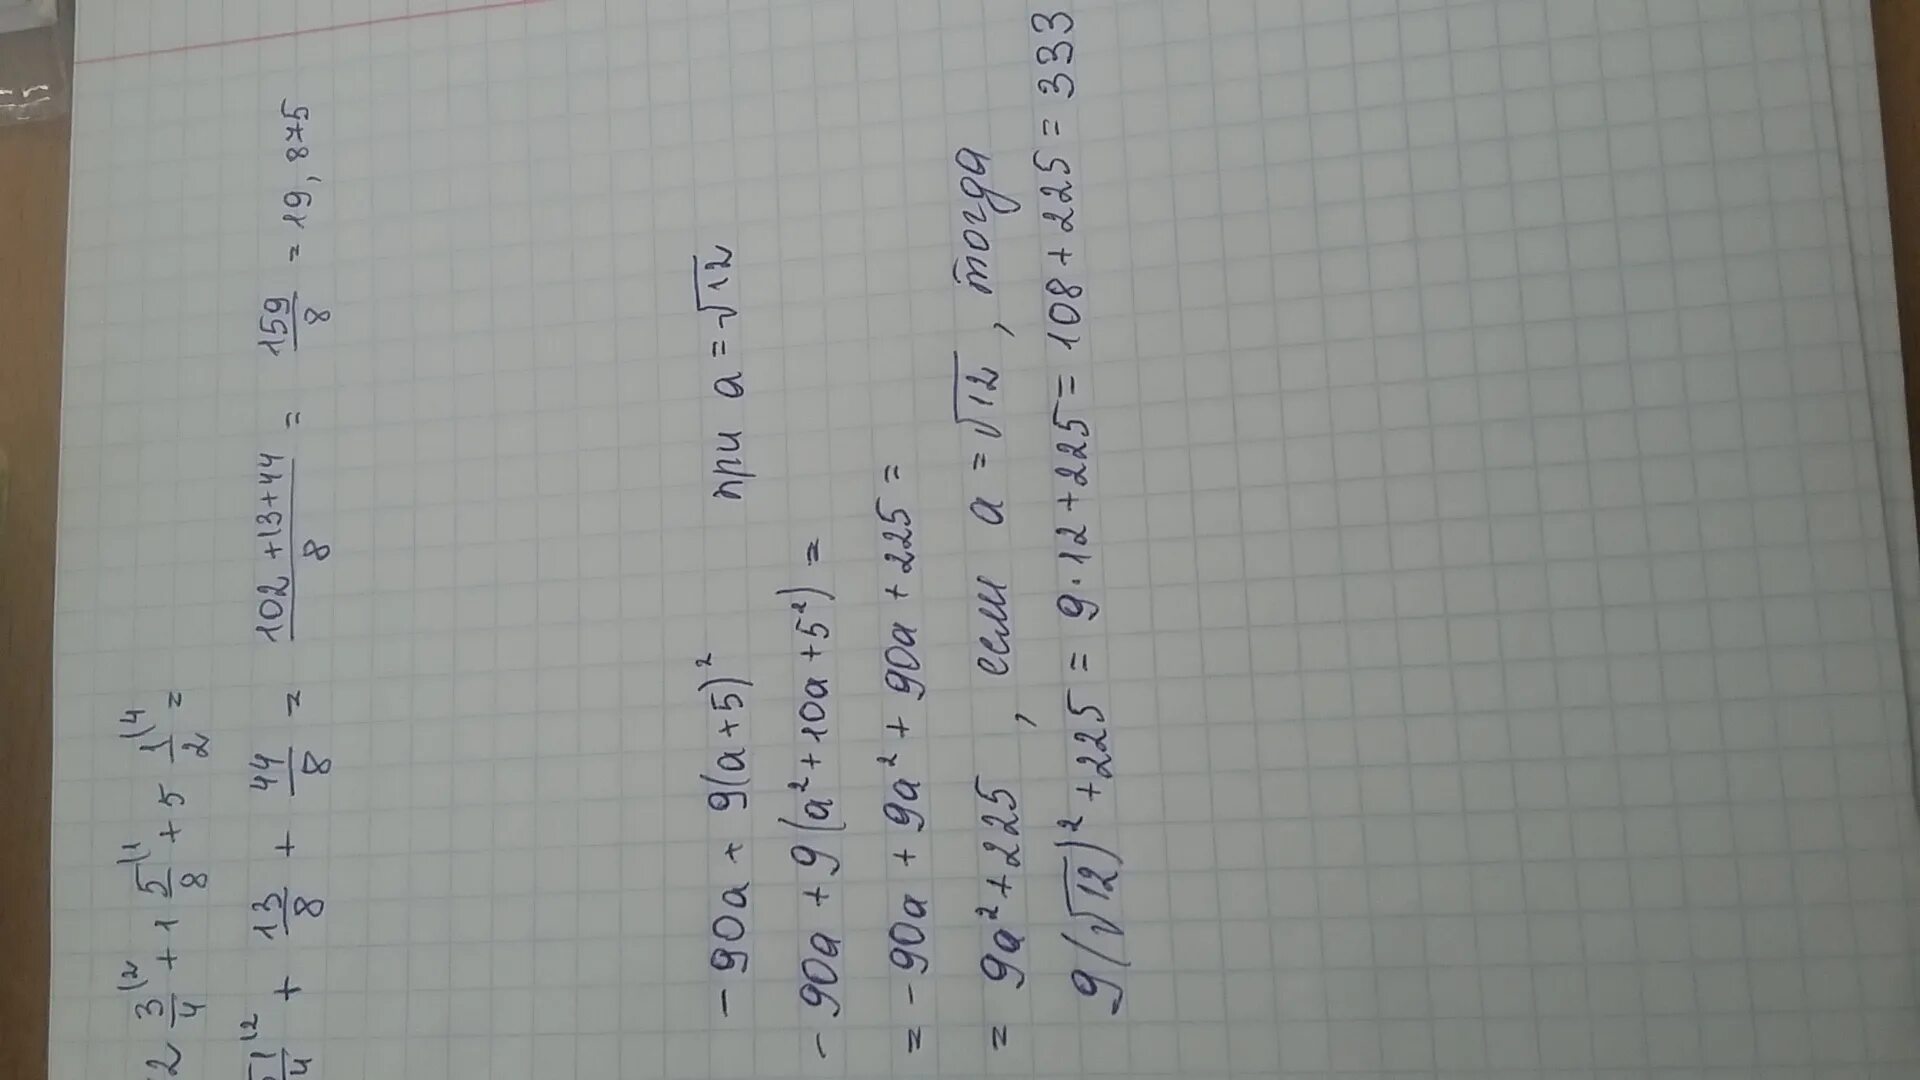 2 3/4⁽² + 1 5/8⁽¹ + 5 1/2⁽⁴ =
51/4⁽² + 13/8 + 44/8 = (102+13+44)/8 = 159/8 = 19,875
- 90a + 9(a+5)² при a = √12
- 90a + 9(a² + 10a + 5²) =
= - 90a + 9a² + 90a + 225 =
= 9a² + 225 , если a = √12 , тогда
9(√12)² + 225 = 9·12 + 225 = 108 + 225 = 333